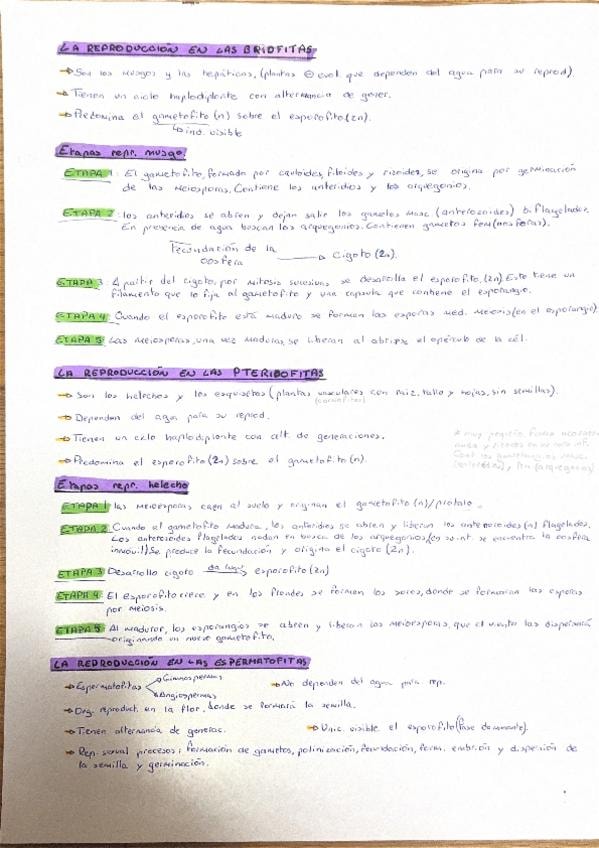 LA REPRODUCCIÓN EN LAS BRIOFITAS
→ Son los musgos y las hepáticas, (plantas ⊖ evol. que dependen del agua para su reprod).
→ Tienen un ciclo haplodiplonte con alternancia de gener.
→ Predomina el gametofito (n) sobre el esporofito (2n).
↳ ind. visible
Etapas repr. musgo
ETAPA 1: El gametofito, formado por cauloides, filoides y rizoides, se origina por germinación
de las meiosporas. Contiene los anteridios y los arquegonios.
ETAPA 2: los anteridios se abren y dejan salir los gametos masc (anterozoides) biflagelados.
En presencia de agua buscan los arquegonios. Contienen gametos fem (oosferas).
Fecundación de la
oosfera → Cigoto (2n).
ETAPA 3: A partir del cigoto, por mitosis sucesivas se desarrolla el esporofito, (2n). Este tiene un
filamento que lo fija al gametofito y una capsula que contiene el esporangio.
ETAPA 4: Cuando el esporofito está maduro se forman las esporas med. meiosis (en el esporangio).
ETAPA 5: Las meiosporas, una vez maduras, se liberan al abrirse el opérculo de la cél.
LA REPRODUCCIÓN EN LAS PTERIDOFITAS
→ Son los helechos y los equisetos (plantas vasculares con raiz, tallo y hojas, sin semillas).
(cormofitas)
→ Dependen del agua para su reprod.
→ Tienen un ciclo haplodiplonte con alt. de generaciones.
→ Predomina el esporofito (2n) sobre el gametofito (n).
* muy pequeño, forma
Etapas repr. helecho
ETAPA 1 las meiosporas caen al suelo y originan el gametofito (n)/protalo.
ETAPA 2 Cuando el gametofito madura, los anteridios se abren y liberan los anterozoides (n) flagelados.
Los anterozoides flagelados nadan en busca de los arquegonios, (en su int. se encuentra la oosfera
inmóvil). Se produce la fecundación y origina el cigoto (2n).
ETAPA 3 Desarrollo cigoto da lugar → esporofito (2n)
ETAPA 4: El esporofito crece y en los frondes se forman los soros, donde se formarán las esporas
por meiosis.
ETAPA 5: Al madurar, los esporangios se abren y liberan las meiosporas, que el viento las dispersará
originando un nuevo gametofito.
LA REPRODUCCIÓN EN LAS ESPERMATOFITAS
→ Espermatofitas Gimnospermas Angiospermas → No dependen del agua para rep.
→ Org. reproduct. en la flor, donde se formará la semilla.
→ Tienen alternancia de generac. → Unic. visible el esporofito (fase dominante).
→ Rep. sexual procesos: formación de gametos, polinización, fecundación, form. embrión y dispersión de
la semilla y germinación.